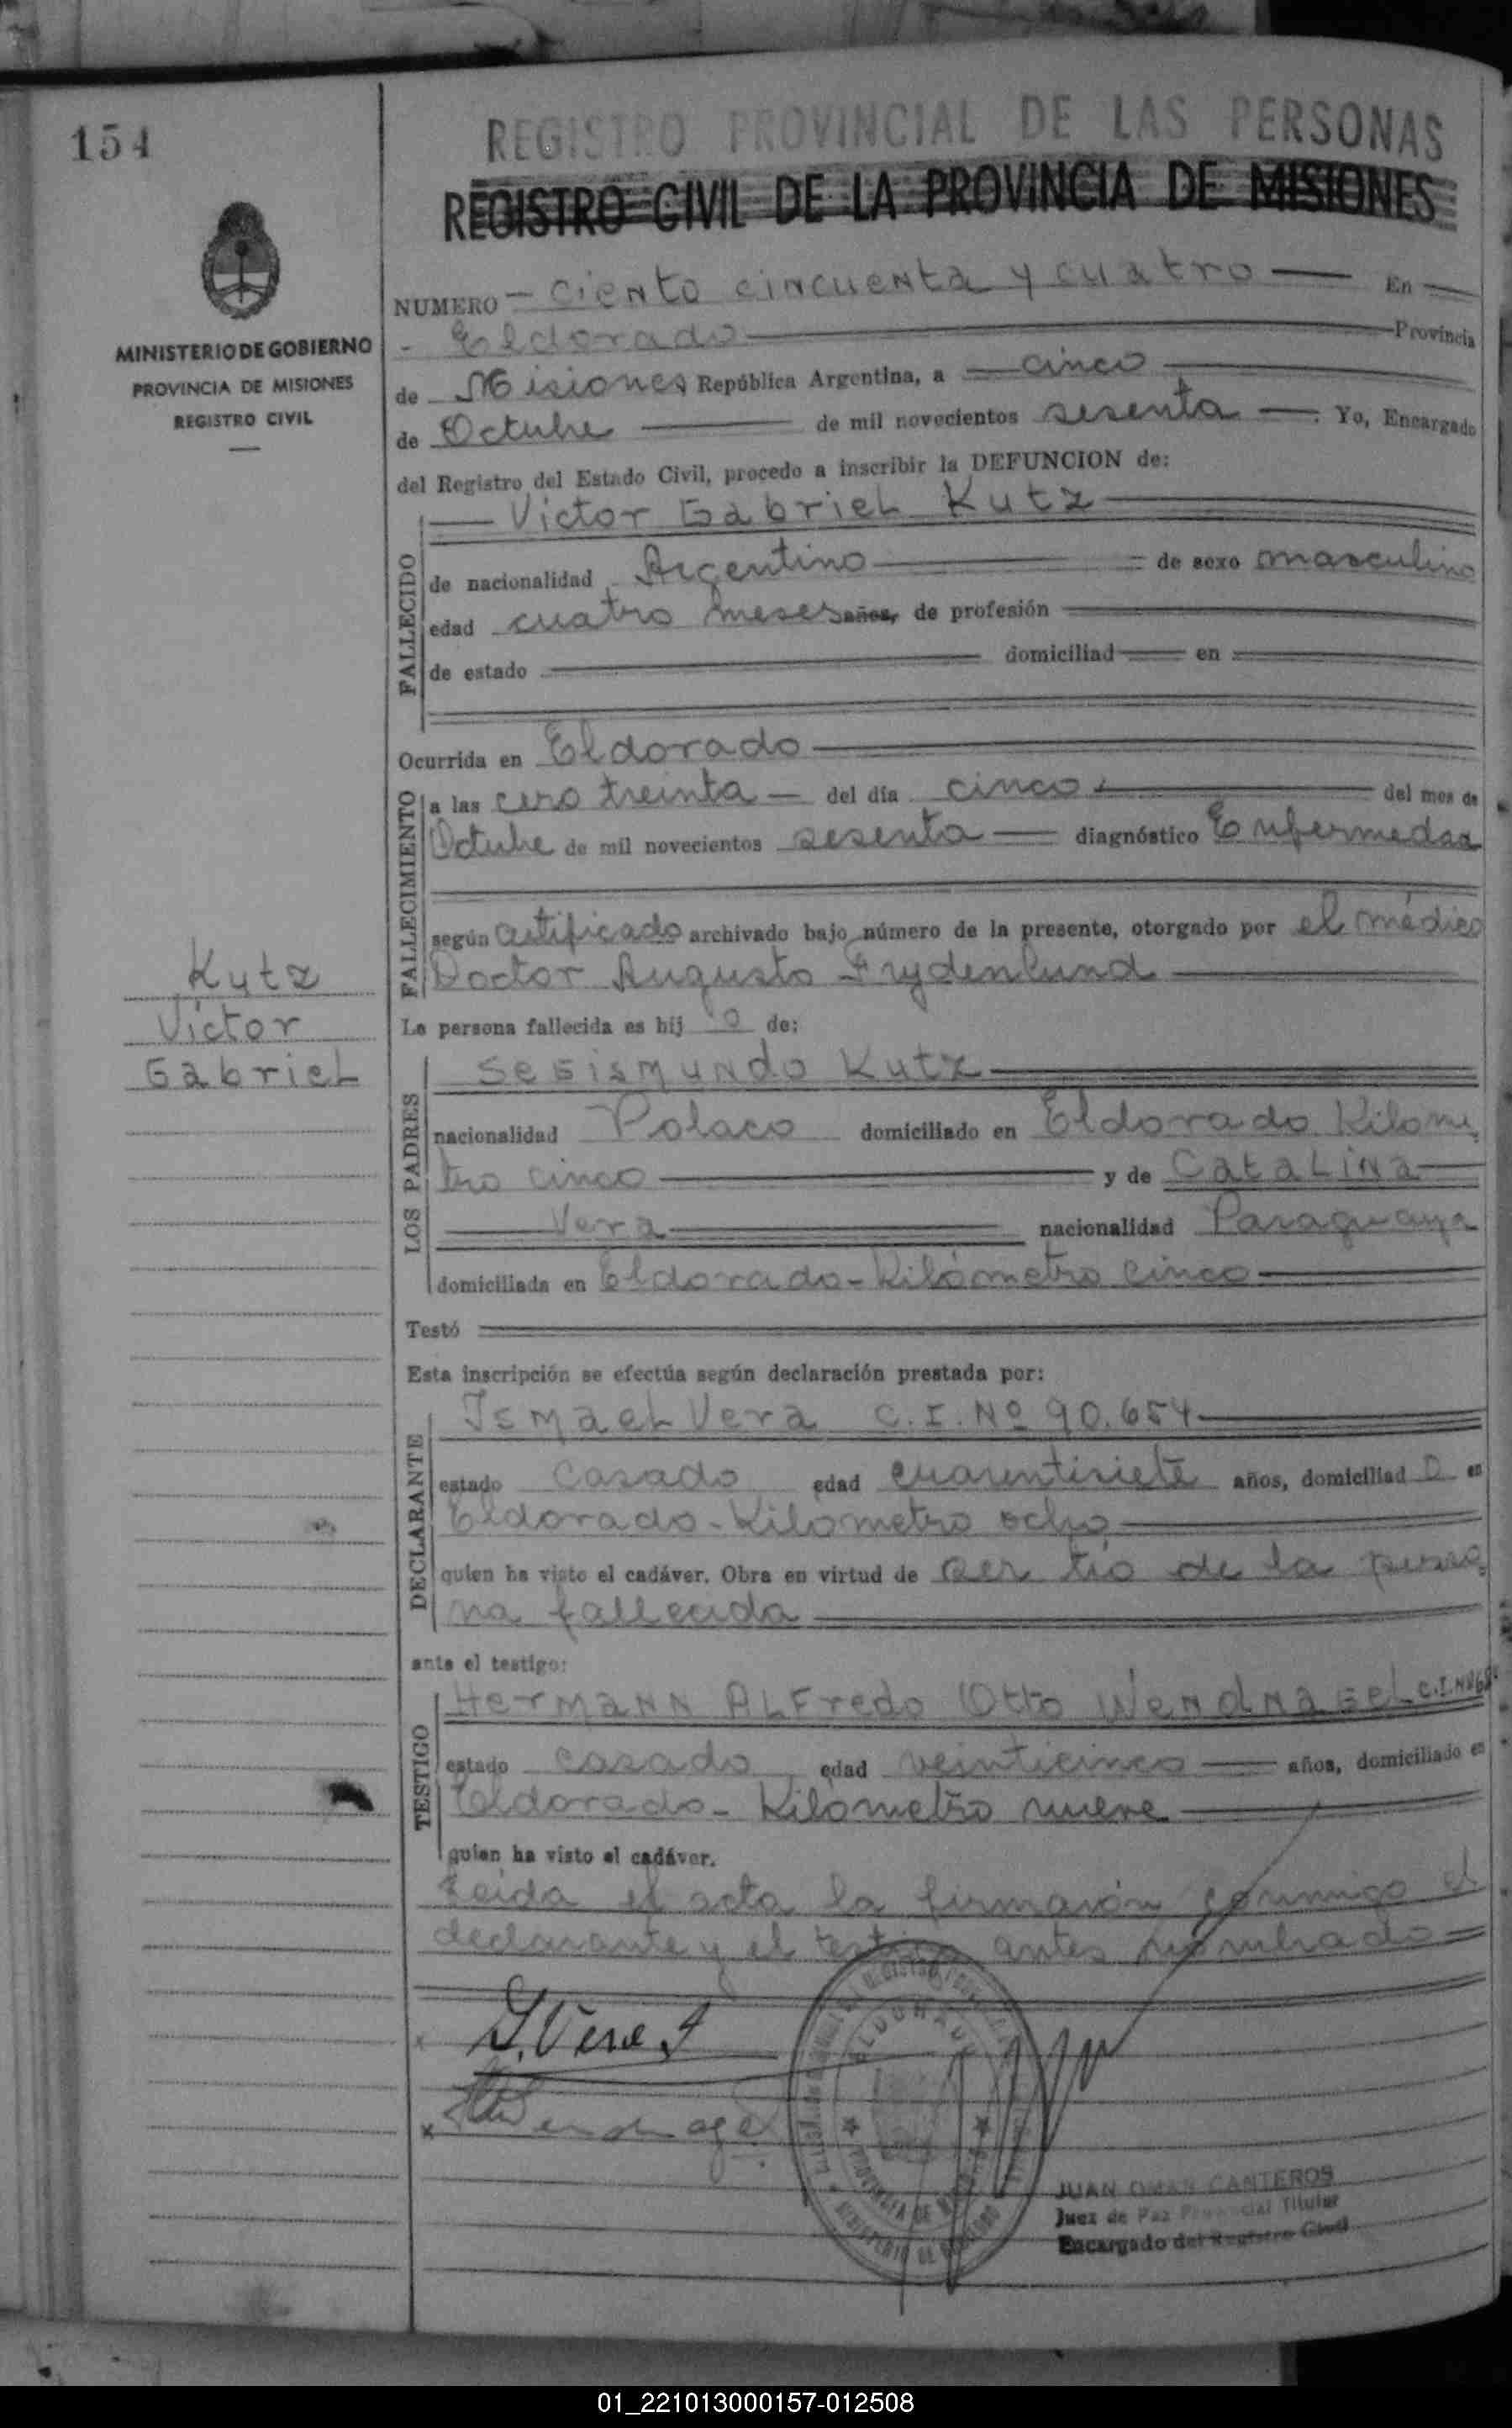 154
REGISTRO PROVINCIAL DE LAS PERSONAS
REGISTRO CIVIL DE LA PROVINCIA DE MISIONES
MINISTERIO DE GOBIERNO
PROVINCIA DE MISIONES
REGISTRO CIVIL
NUMERO - Ciento cincuenta y cuatro — En
- Eldorado — Provincia
de Misiones República Argentina, a — cinco
de Octubre — de mil novecientos sesenta —. Yo, Encargado
del Registro del Estado Civil, procedo a inscribir la DEFUNCION de:
FALLECIDO
Victor Gabriel Kutz
de nacionalidad Argentino — de sexo masculino
edad cuatro meses años, de profesión
de estado — domiciliad — en
Ocurrida en Eldorado
FALLECIMIENTO
a las cero treinta — del día cinco — del mes de
Octubre de mil novecientos sesenta — diagnóstico Enfermedad
según certificado archivado bajo número de la presente, otorgado por el médico
Doctor Augusto Frydenlund
Kutz
Victor
Gabriel
La persona fallecida es hij o de:
LOS PADRES
Segismundo Kutz
nacionalidad Polaco domiciliado en Eldorado Kilome
tro cinco — y de Catalina
Vera — nacionalidad Paraguaya
domiciliada en Eldorado - Kilómetro cinco
Testó
Esta inscripción se efectúa según declaración prestada por:
DECLARANTE
Ismael Vera C.I. Nº 90.654
estado Casado edad cuarentisiete años, domiciliad o en
Eldorado - Kilometro ocho
quien ha visto el cadáver. Obra en virtud de ser tio de la perso
na fallecida
ante el testigo:
TESTIGO
Hermann Alfredo Otto Wendnagel C.I. Nº
estado casado edad veinticinco — años, domiciliado en
Eldorado - Kilometro nueve
quien ha visto el cadáver.
Leida el acta la firmarón conmigo el
declarante y el testigo antes nombrado
ELDORADO
PROVINCIA DE MISIONES
MINISTERIO DE GOBIERNO
JUAN OMAR CANTEROS
Juez de Paz Provincial Titular
Encargado del Registro Civil
01_221013000157-012508